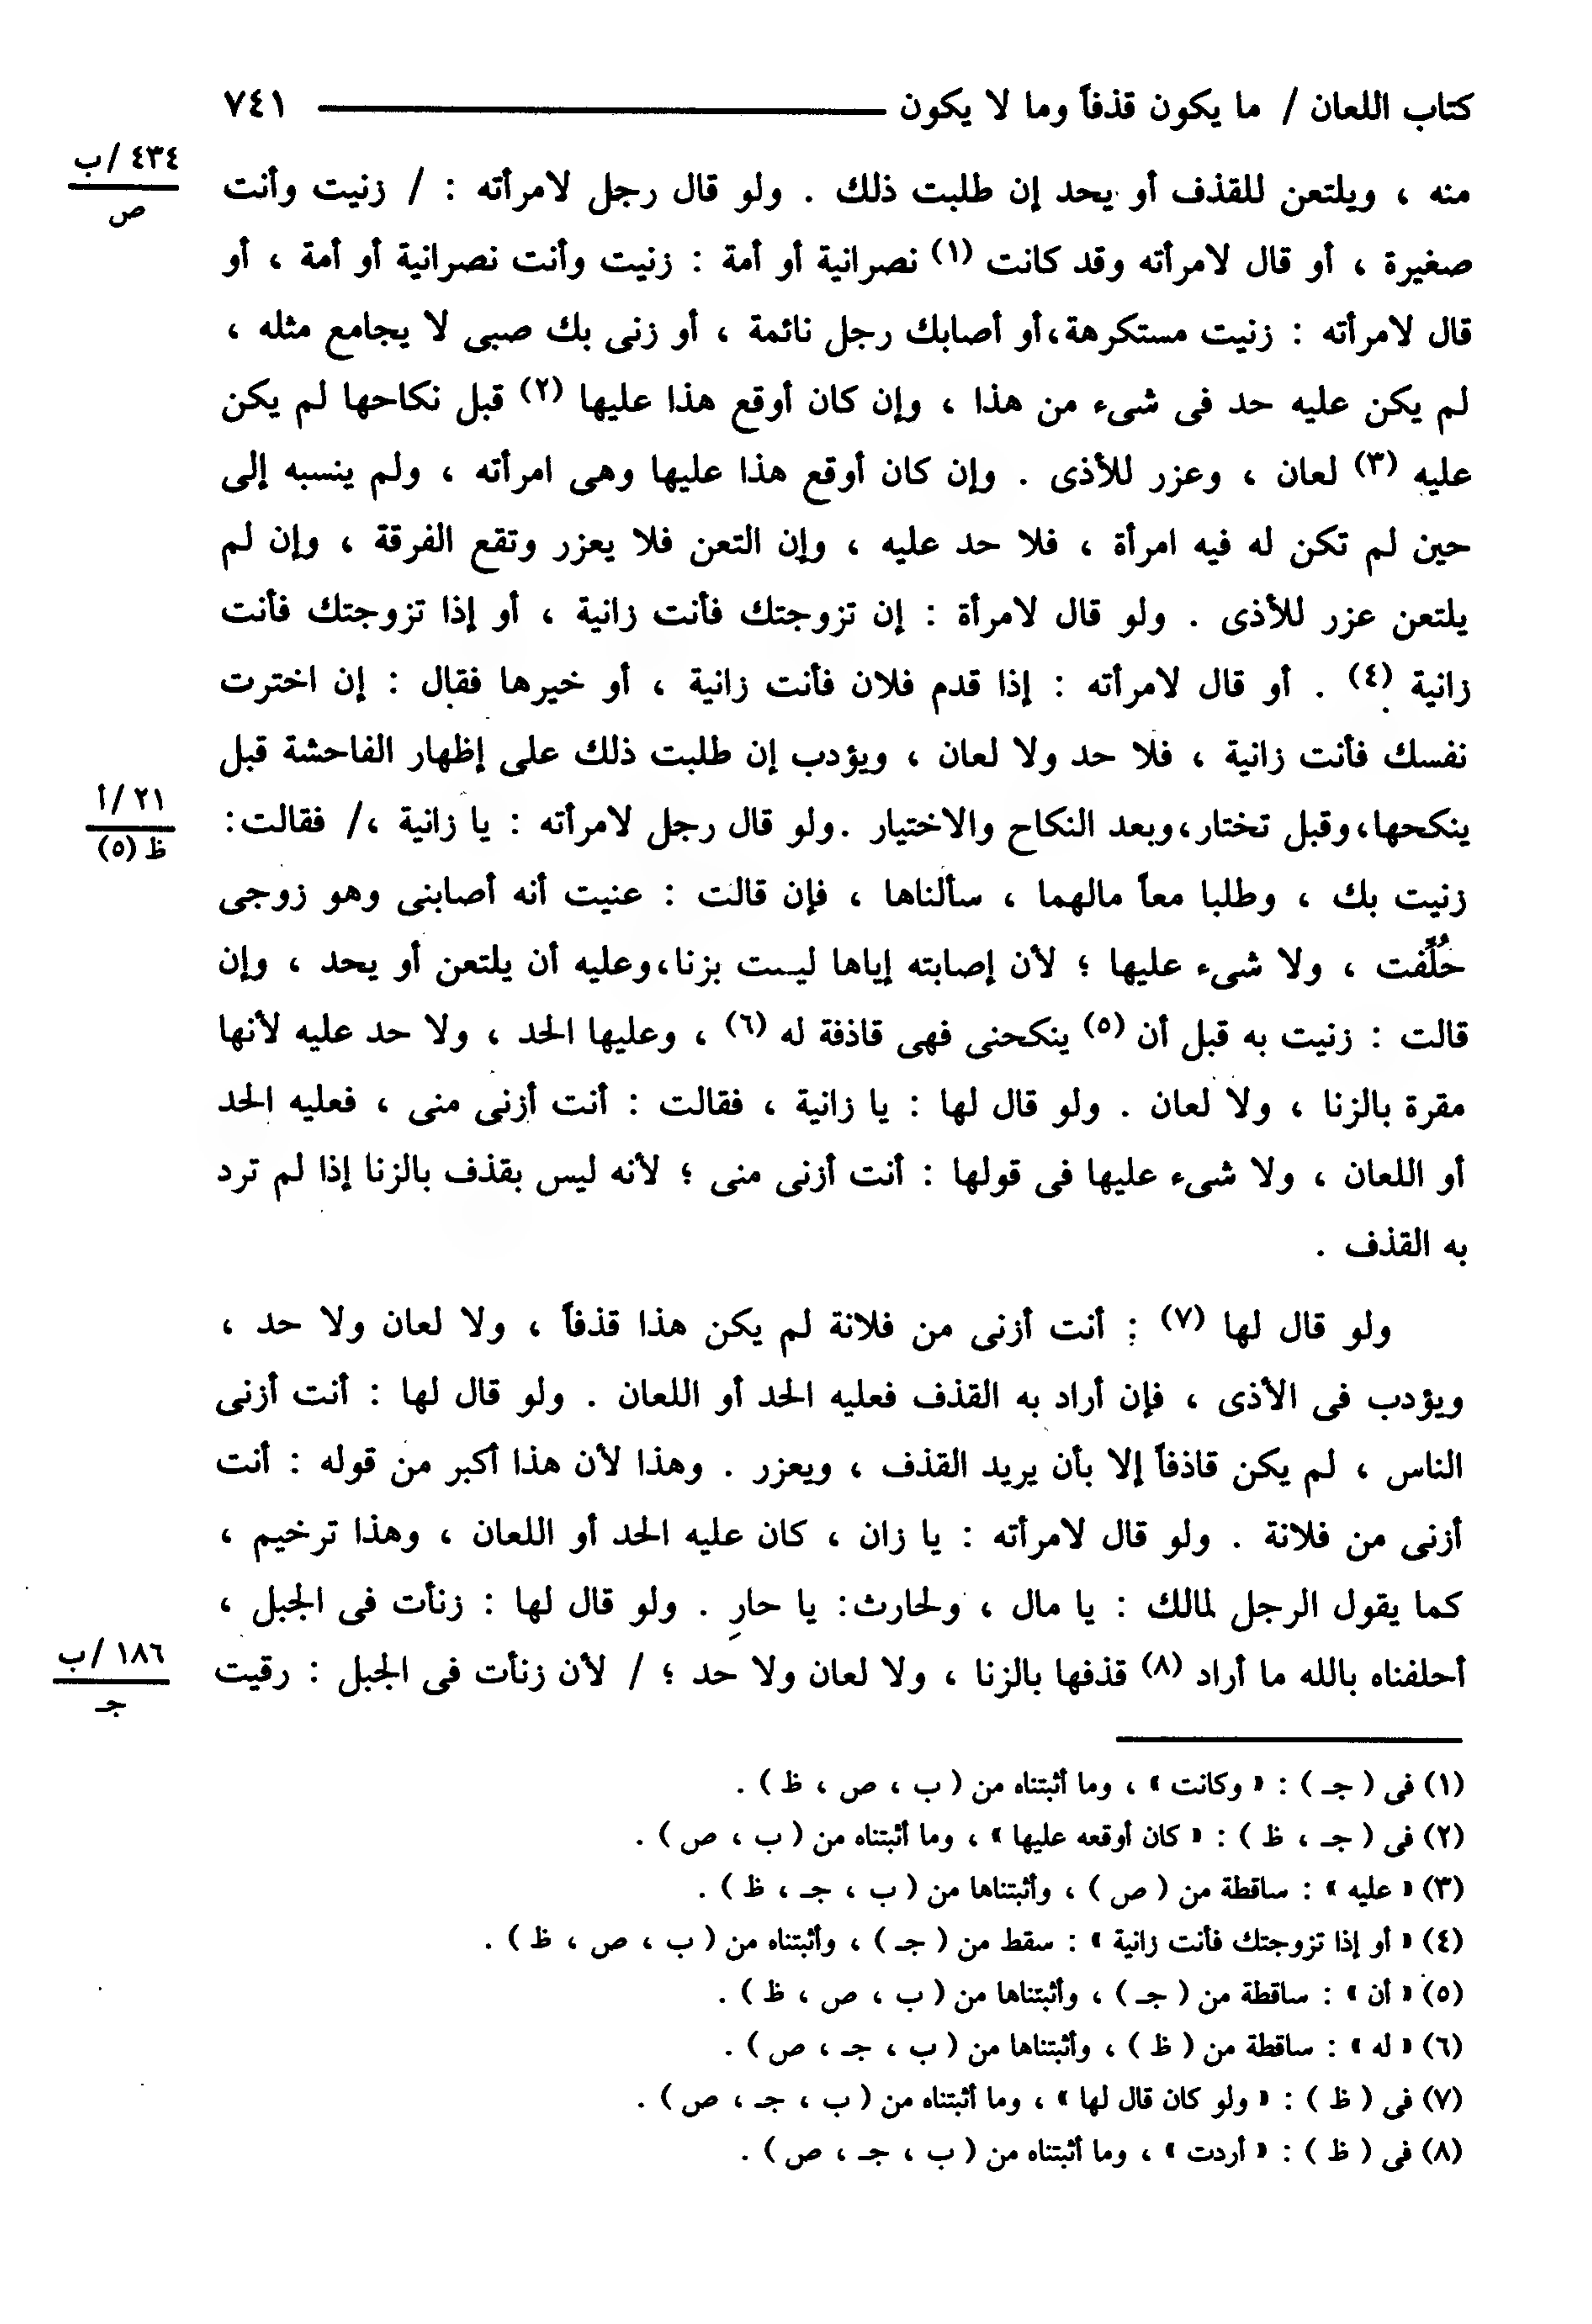 كتاب اللعان / ما يكون قذفاً وما لا يكون ــــــــــــ ٧٤١
٤٣٤ / ب
ص
منه ، ويلتعن للقذف أو يحد إن طلبت ذلك . ولو قال رجل لامرأته : / زنيت وأنت
صغيرة ، أو قال لامرأته وقد كانت (١) نصرانية أو أمة : زنيت وأنت نصرانية أو أمة ، أو
قال لامرأته : زنيت مستكرهة،أو أصابك رجل نائمة ، أو زنى بك صبى لا يجامع مثله ،
لم يكن عليه حد فى شىء من هذا ، وإن كان أوقع هذا عليها (٢) قبل نكاحها لم يكن
عليه (٣) لعان ، وعزر للأذى . وإن كان أوقع هذا عليها وهى امرأته ، ولم ينسبه إلى
حين لم تكن له فيه امرأة ، فلا حد عليه ، وإن التعن فلا يعزر وتقع الفرقة ، وإن لم
يلتعن عزر للأذى . ولو قال لامرأة : إن تزوجتك فأنت زانية ، أو إذا تزوجتك فأنت
زانية (٤) . أو قال لامرأته : إذا قدم فلان فأنت زانية ، أو خيرها فقال : إن اخترت
نفسك فأنت زانية ، فلا حد ولا لعان ، ويؤدب إن طلبت ذلك على إظهار الفاحشة قبل
٢١ / أ
ظ (٥)
ينكحها،وقبل تختار،وبعد النكاح والاختيار .ولو قال رجل لامرأته : يا زانية ،/ فقالت:
زنيت بك ، وطلبا معاً مالهما ، سألناها ، فإن قالت : عنيت أنه أصابنى وهو زوجى
حُلِّفت ، ولا شىء عليها ؛ لأن إصابته إياها ليست بزنا،وعليه أن يلتعن أو يحد ، وإن
قالت : زنيت به قبل أن (٥) ينكحنى فهى قاذفة له (٦) ، وعليها الحد ، ولا حد عليه لأنها
مقرة بالزنا ، ولا لعان . ولو قال لها : يا زانية ، فقالت : أنت أزنى منى ، فعليه الحد
أو اللعان ، ولا شىء عليها فى قولها : أنت أزنى منى ؛ لأنه ليس بقذف بالزنا إذا لم ترد
به القذف .
ولو قال لها (٧) : أنت أزنى من فلانة لم يكن هذا قذفاً ، ولا لعان ولا حد ،
ويؤدب فى الأذى ، فإن أراد به القذف فعليه الحد أو اللعان . ولو قال لها : أنت أزنى
الناس ، لم يكن قاذفاً إلا بأن يريد القذف ، ويعزر . وهذا لأن هذا أكبر من قوله : أنت
أزنى من فلانة . ولو قال لامرأته : يا زان ، كان عليه الحد أو اللعان ، وهذا ترخيم ،
كما يقول الرجل لمالك : يا مال ، ولحارث: يا حارِ . ولو قال لها : زنأت فى الجبل ،
١٨٦ / ب
جـ
أحلفناه بالله ما أراد (٨) قذفها بالزنا ، ولا لعان ولا حد ؛ / لأن زنأت فى الجبل : رقيت
(١) فى ( جـ ) : « وكانت » ، وما أثبتناه من ( ب ، ص ، ظ ) .
(٢) فى ( جـ ، ظ ) : « كان أوقعه عليها » ، وما أثبتناه من ( ب ، ص ) .
(٣) « عليه » : ساقطة من ( ص ) ، وأثبتناها من ( ب ، جـ ، ظ ) .
(٤) « أو إذا تزوجتك فأنت زانية » : سقط من ( جـ ) ، وأثبتناه من ( ب ، ص ، ظ ) .
(٥) « أن » : ساقطة من ( جـ ) ، وأثبتناها من ( ب ، ص ، ظ ) .
(٦) « له » : ساقطة من ( ظ ) ، وأثبتناها من ( ب ، جـ ، ص ) .
(٧) فى ( ظ ) : « ولو كان قال لها » ، وما أثبتناه من ( ب ، جـ ، ص ) .
(٨) فى ( ظ ) : « أردت » ، وما أثبتناه من ( ب ، جـ ، ص ) .